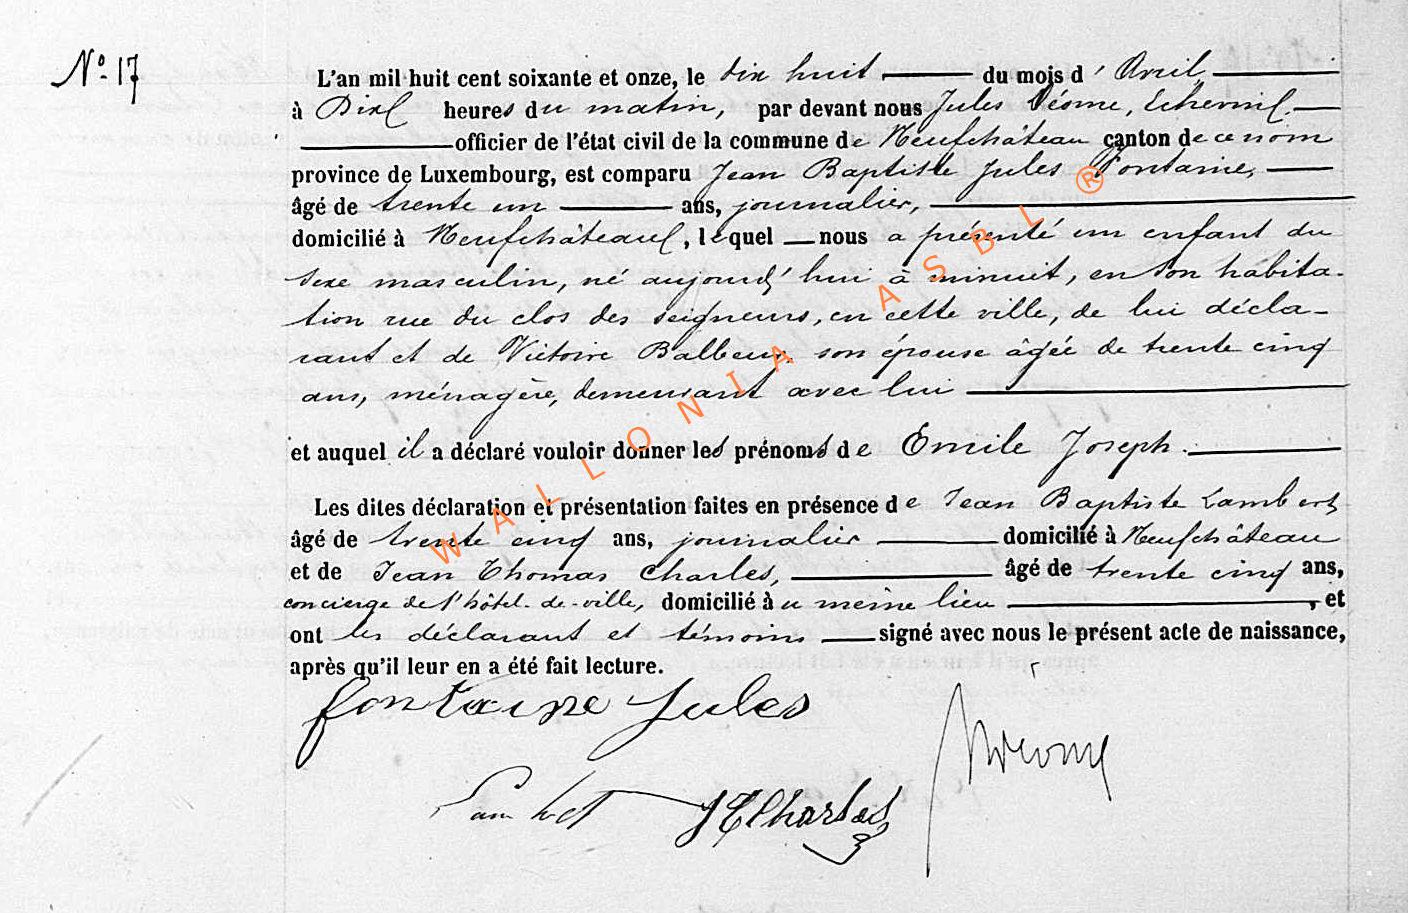 N° 17
L'an mil huit cent soixante et onze, le dix huit du mois d'Avril,
à Dix heures du matin, par devant nous Jules
officier de l'état civil de la commune de Neufchâteau canton de ce nom
province de Luxembourg, est comparu Jean Baptiste Jules Fontaine,
âgé de trente un ans, journalier,
domicilié à Neufchâteau, lequel nous a présenté un enfant du
sexe masculin, né aujourd'hui à minuit, en son habita-
tion rue du clos des seigneurs, en cette ville, de lui décla-
rant et de Victoire son épouse âgée de trente cinq
ans, ménagère, demeurant avec lui
et auquel il a déclaré vouloir donner les prénoms de Emile Joseph.
Les dites déclaration et présentation faites en présence de Jean Baptiste Lambert
âgé de trente cinq ans, journalier domicilié à Neufchâteau
et de Jean Thomas Charles, âgé de trente cinq ans,
concierge de l'hôtel-de-ville, domicilié à u meine lieu, et
ont les déclarant et témoins signé avec nous le présent acte de naissance,
après qu'il leur en a été fait lecture.
fontaine Jules
JTCharles
WALLONIA ASBL ®